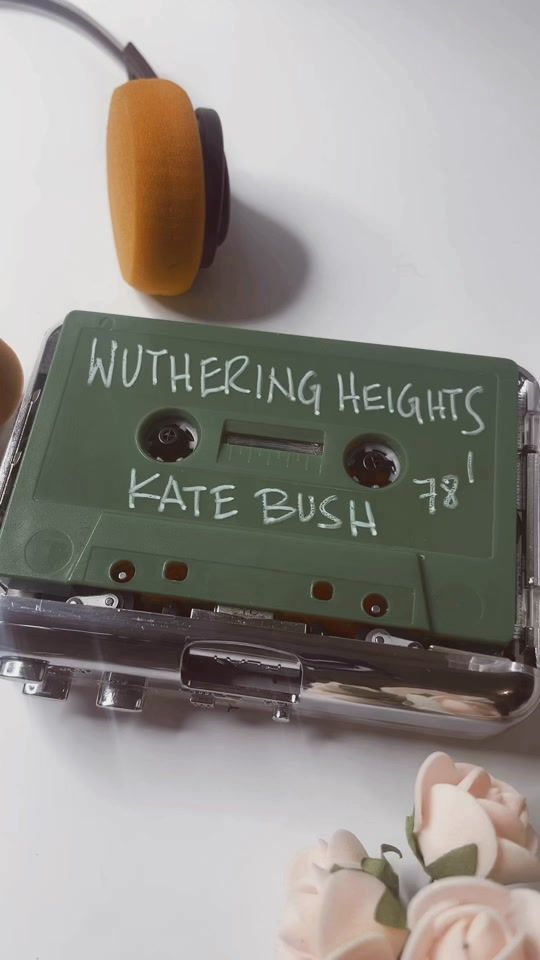 WUTHERING HEIGHTS
KATE BUSH
78'